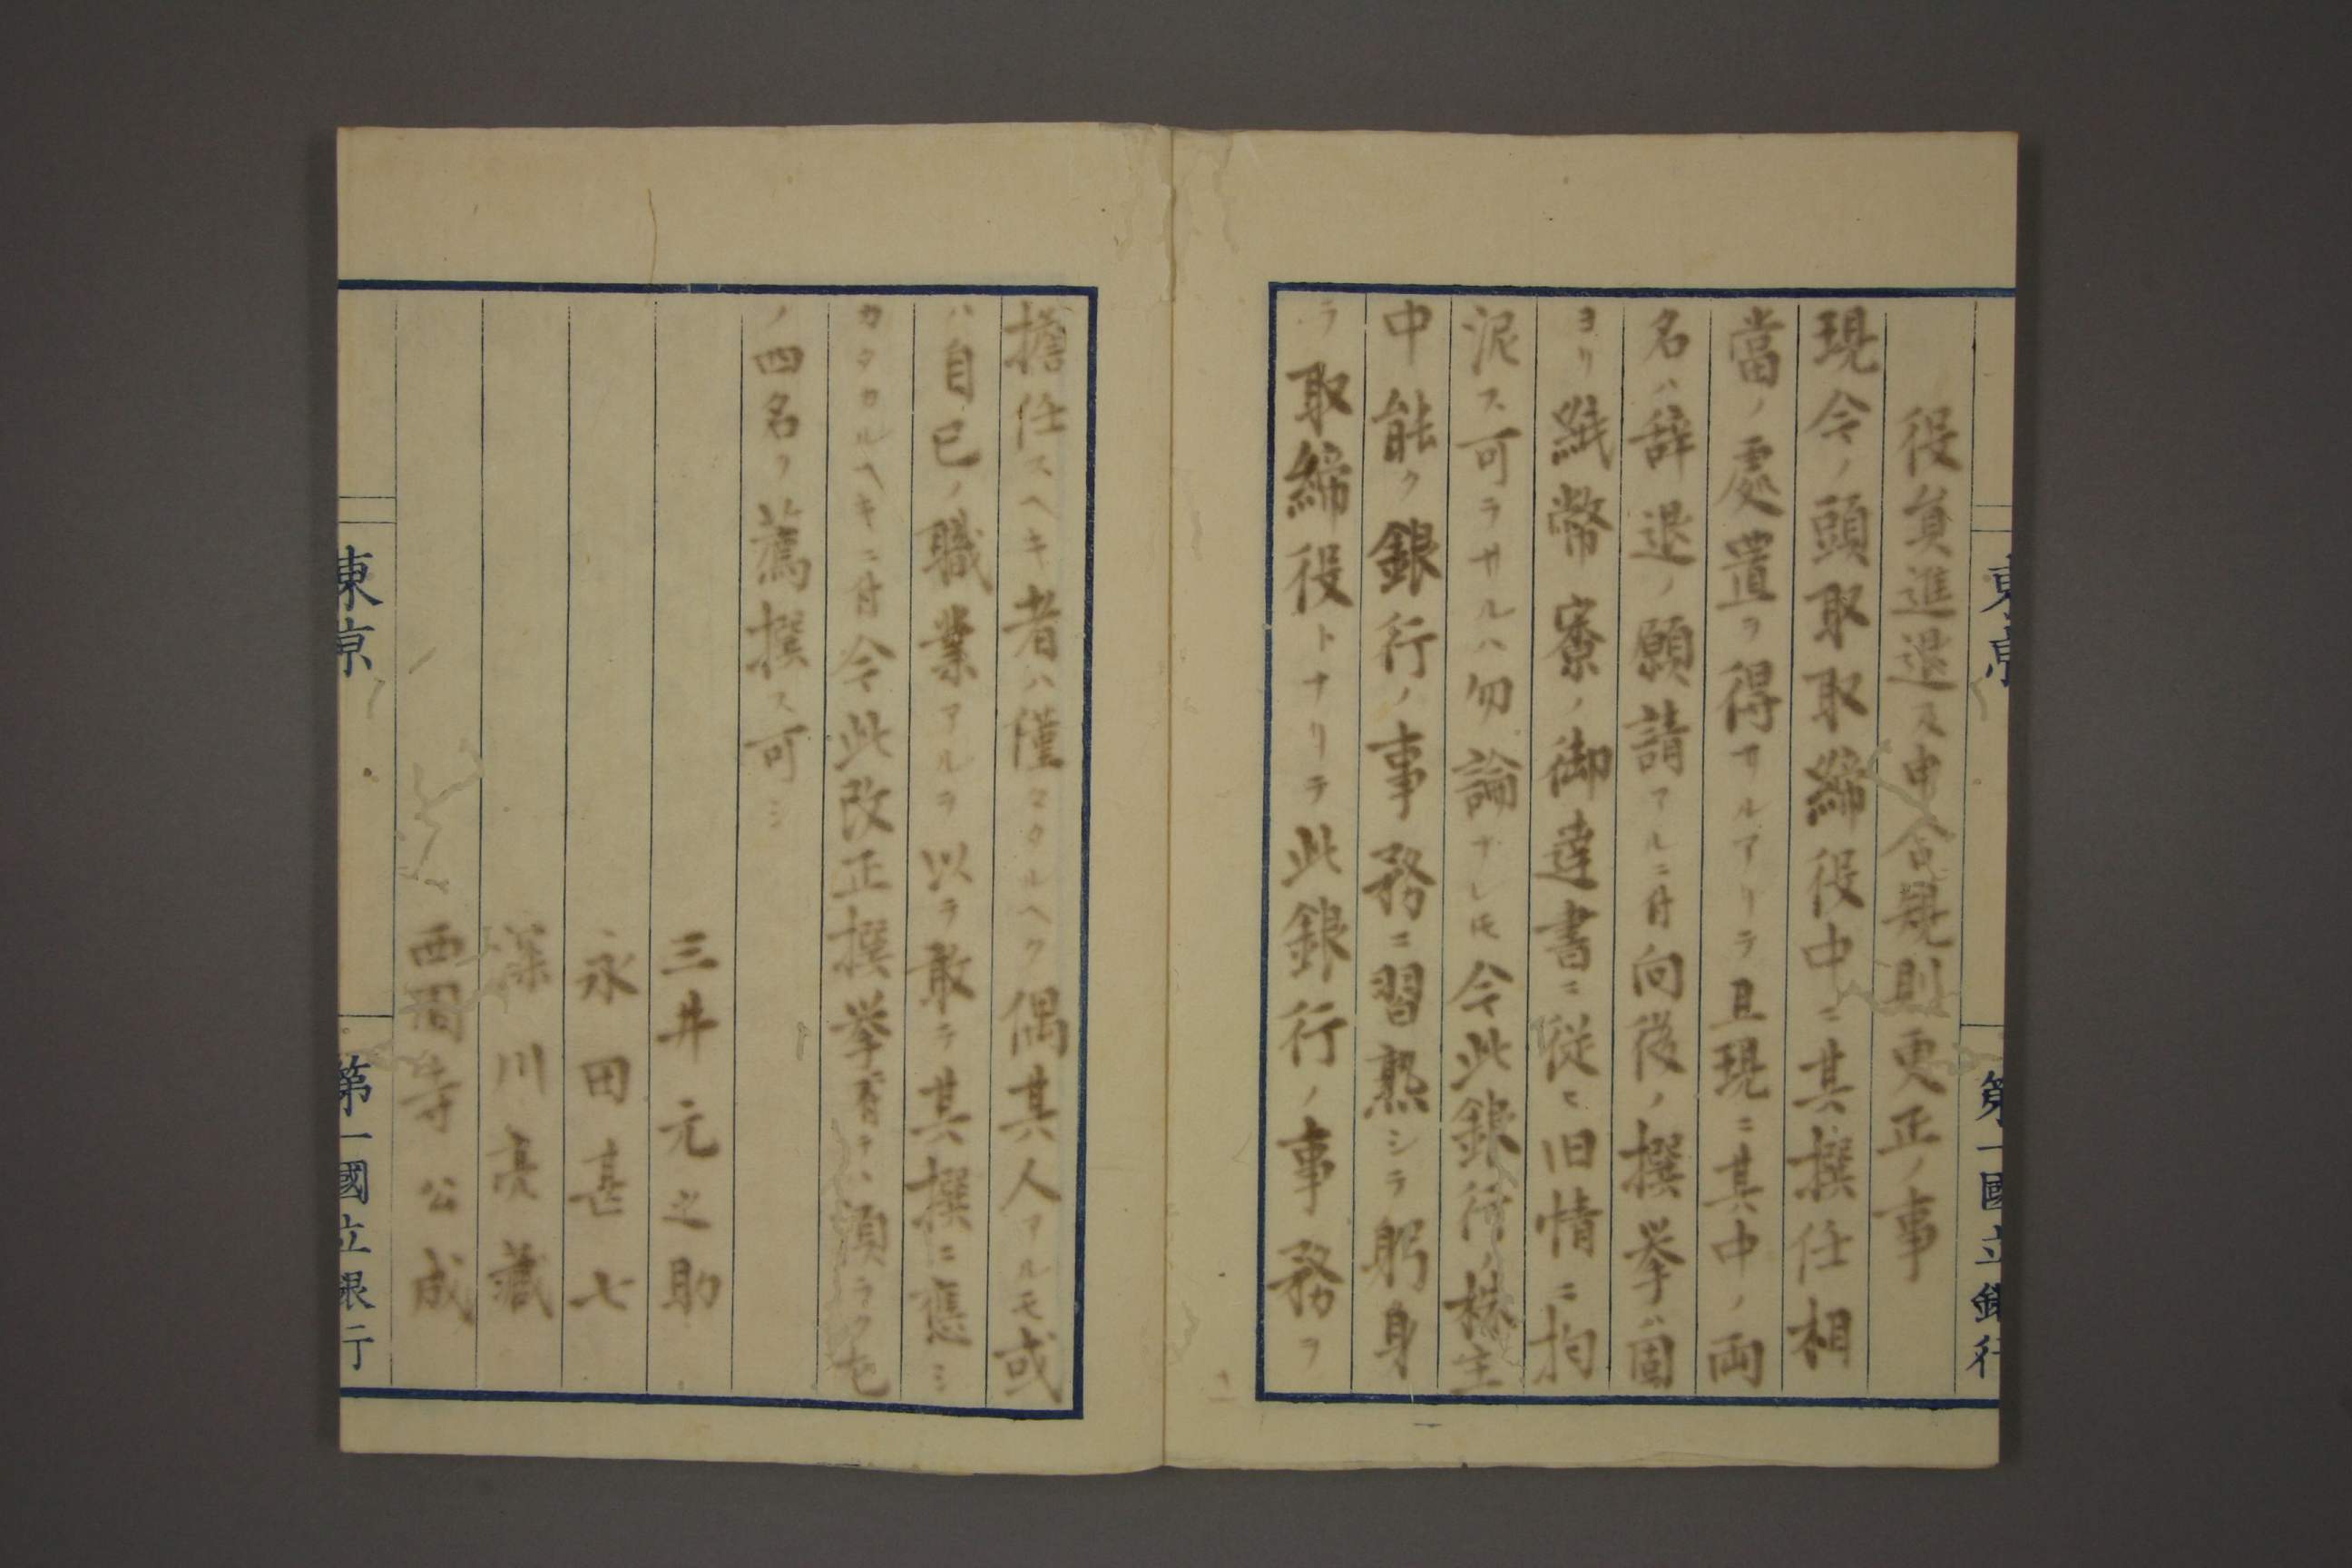 役員進退及申合規則更正ノ事
現今ノ頭取取締役中ニ其撰任相
當ノ處置ヲ得サルアリテ且現ニ其中ノ両
名ハ辞退ノ願請アルニ付向後ノ撰挙ハ固
ヨリ紙幣寮ノ御達書ニ従ヒ旧情ニ拘
泥ス可ラサルハ勿論ナレ𪜈今此銀行ノ株主
中能ク銀行ノ事務ニ習熟シテ躬身
ラ取締役トナリテ此銀行ノ事務ヲ
擔任スヘキ者ハ僅々タルヘク偶其人アルモ或
ハ自己ノ職業アルヲ以テ敢テ其撰ニ應シ
カタカルヘキニ付今此改正撰挙ハ須ラク左
ノ四名ヲ薦撰ス可シ
三井元之助
永田甚七
深川亮蔵
西園寺公成
東京 第一國立銀行
東京 第一國立銀行